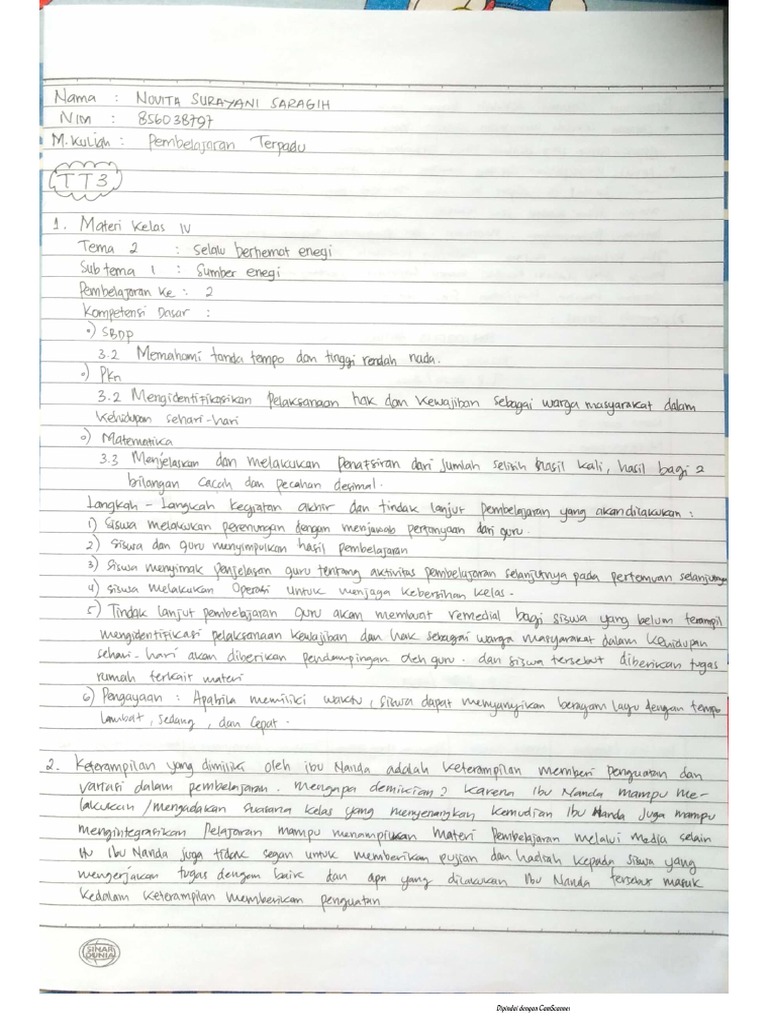 Nama : NOVITA SURAYANI SARAGIH
NIM : 856038797
M. Kuliah : Pembelajaran Terpadu
TT3
1. Materi Kelas IV
Tema 2 : Selalu berhemat enegi
Sub tema 1 : Sumber enegi
Pembelajaran Ke : 2
Kompetensi Dasar :
•) SBDP
3.2 Memahami tanda tempo dan tinggi rendah nada.
•) PKn
3.2 Mengidentifikasikan Pelaksanaan hak dan Kewajiban sebagai warga masyarakat dalam
Kehidupan sehari-hari
•) Matematika
3.3 Menjelaskan dan melakukan penafsiran dari jumlah selisih hasil kali, hasil bagi 2
bilangan Cacah dan pecahan desimal.
Langkah - Langkah kegiatan akhir dan tindak lanjut pembelajaran yang akan dilakukan :
1) Siswa melakukan perenungan dengan menjawab pertanyaan dari guru.
2) Siswa dan guru menyimpulkan hasil pembelajaran
3) Siswa menyimak penjelasan guru tentang aktivitas pembelajaran selanjutnya pada pertemuan selanjutnya
4) Siswa melakukan Operasi untuk menjaga kebersihan kelas.
5) Tindak lanjut pembelajaran Guru akan membuat remedial bagi siswa yang belum terampil
mengidentifikasi pelaksanaan kewajiban dan hak sebagai warga masyarakat dalam kehidupan
sehari-hari akan diberikan pendampingan oleh guru. dan siswa tersebut diberikan tugas
rumah terkait materi
6) Pengayaan : Apabila memiliki waktu, siswa dapat menyanyikan beragam lagu dengan tempo
Lambat, sedang, dan Cepat.
2. Keterampilan yang dimiliki oleh ibu Nanda adalah keterampilan memberi penguatan dan
variasi dalam pembelajaran. mengapa demikian? karena Ibu Nanda mampu me-
lakukan/mengadakan suasana kelas yang menyenangkan kemudian Ibu Nanda juga mampu
mengintegrasikan Pelajaran mampu menampilkan materi Pembelajaran melalui media selain
itu Ibu Nanda juga tidak segan untuk memberikan pujian dan hadiah kepada siswa yang
mengerjakan tugas dengan baik dan apa yang dilakukan Ibu Nanda tersebut masuk
kedalam keterampilan memberikan penguatan
SINAR
DUNIA
Dipindai dengan CamScanner